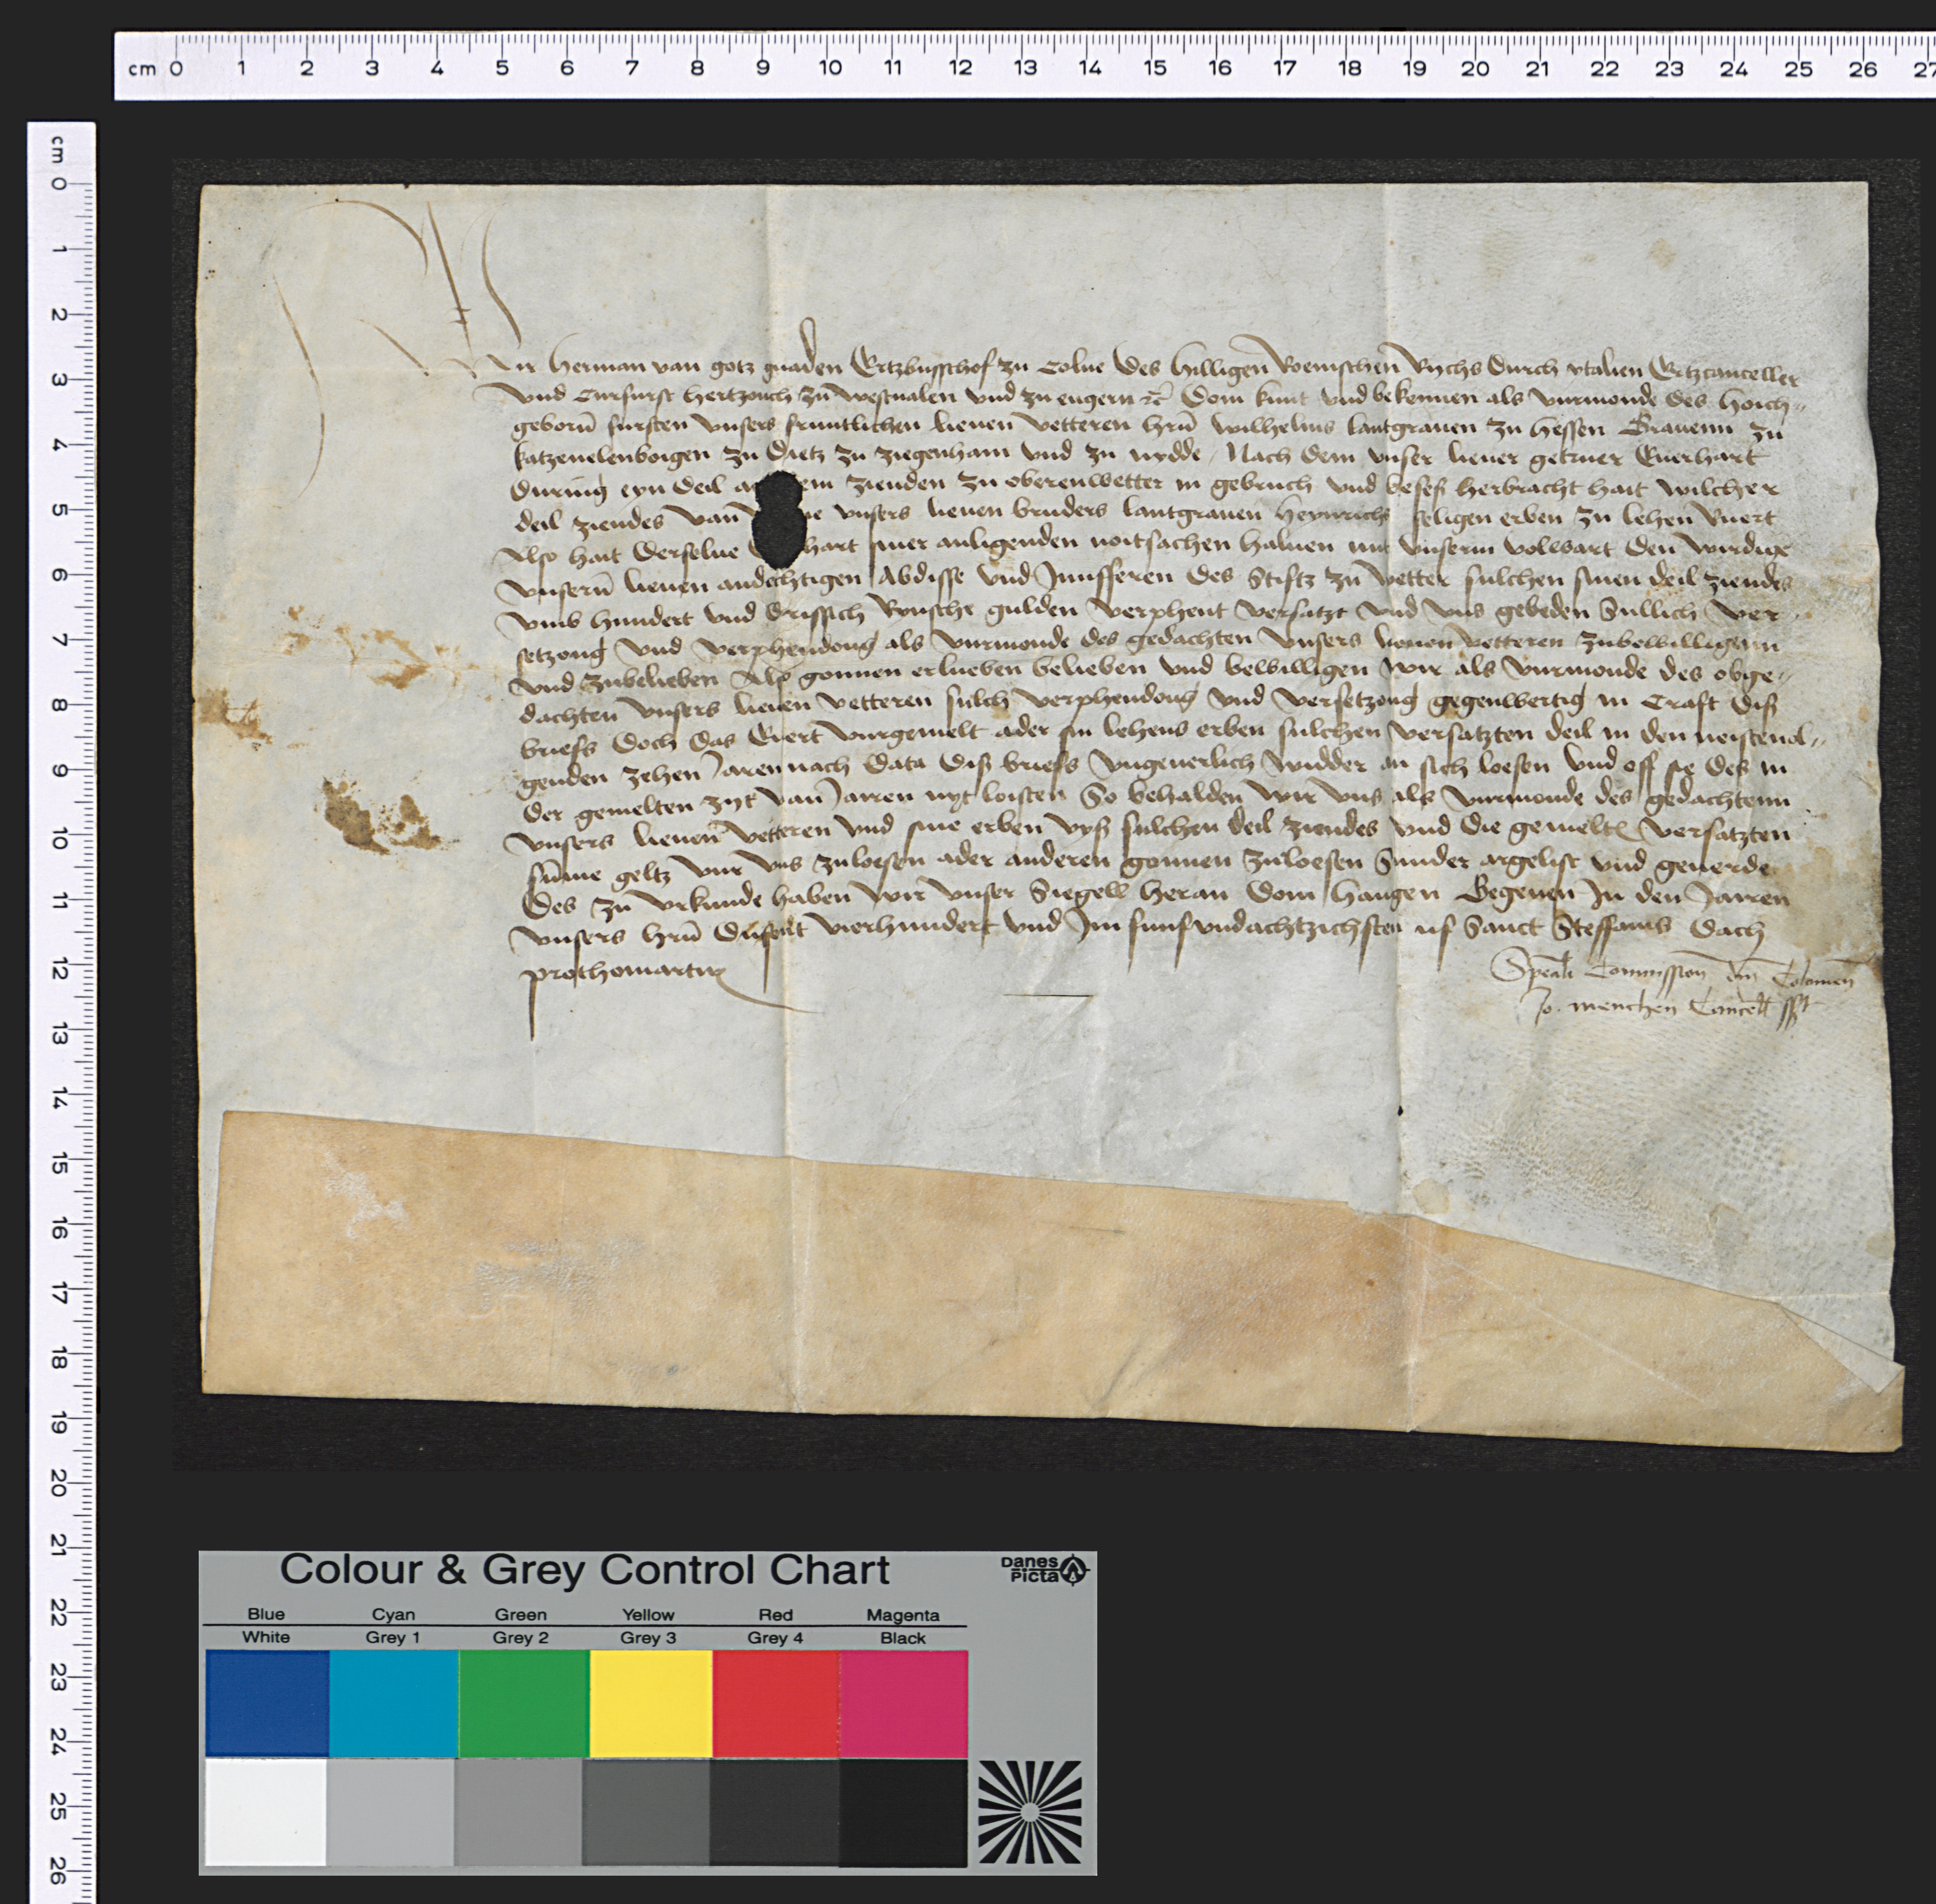 Wir Herman van gotz gnaden Ertzbusschof zu Colne des hilligen Roemschen Rychs durch ytalien Ertzcanceller
vnd Curfurst hertzouch zu westualen vnd zu engern rc̃ Doin kunt vnd bekennen als vurmonde des hoich„
gebornn̄ fursten vnsers fruntlichen lieuen vetteren hern̄ wilhelms lantgrauen zu hessen Grauenn zu
katzenelenboigen zu Dietz zu ziegenhain vnd zu nydde, Nach dem vnser lieuer getruer Euerhart
During eyn deil a em zienden zu oberenwetter in gebruch vnd beseß herbracht hait wilcher
deil ziendes van e vnsers lieuen bruders lantgrauen Heynrichs seligen erben zu lehen Ruert
Also hait derselue hart siner anligenden noitsachen haluen mit vnserm volwart den wirdige
vnsern̄ lieuen andechtigen Abdisse vnd Junfferen des Stiftz zu wetter sulchen sinen deil ziendes
vmb hundert vnd drissich Rynsche gulden verphent versatzt vnd vns gebeden Sullich ver„
setzong vnd verphendong als vurmonde des gedachten vnsers lieuen vetteren zubewilligenn
vnd zubelieben Also gonnen erlueben belieben vnd bewilligen wir als vurmonde des obge„
dachten vnsers lieuen vetteren sulch verphendong vnd versetzong gegenwertig in Craft diß
briefs Doch das Euert vurgemelt ader sin lehens erben sulchen versatzten deil in den neistenol„
genden zehen Jaren nach data diß briefs vngeuerlich widder an sich loesen vnd off sie des in
der gemelten zyt van Jarren nyt loisten So behalden wir vns als vurmonde des gedachtenn
vnsers lieuen vetteren vnd sine erben vyß sulchen deil ziendes vnd die gemelte versatzten
sum̄e geltz vur vns zuloesen ader anderen gonnen zuloesen Sunder argelist vnd geuerde
Des zu vrkunde haben wir vnser Siegell heran doin hangen Gegeuen In den Jarren
vnsers hern̄ dusent vierhundert vnd Im funfvndachtzichsten uf Sanct Steffans dach
prothomartir
Sp̄eali Com̄ission dn̄i Colonien̄
Jo. menchen Cancell sst
cm 0 1 2 3 4 5 6 7 8 9 10 11 12 13 14 15 16 17 18 19 20 21 22 23 24 25 26 27
cm 0 1 2 3 4 5 6 7 8 9 10 11 12 13 14 15 16 17 18 19 20 21 22 23 24 25 26
Colour & Grey Control Chart
Danes
Picta
Blue Cyan Green Yellow Red Magenta
White Grey 1 Grey 2 Grey 3 Grey 4 Black